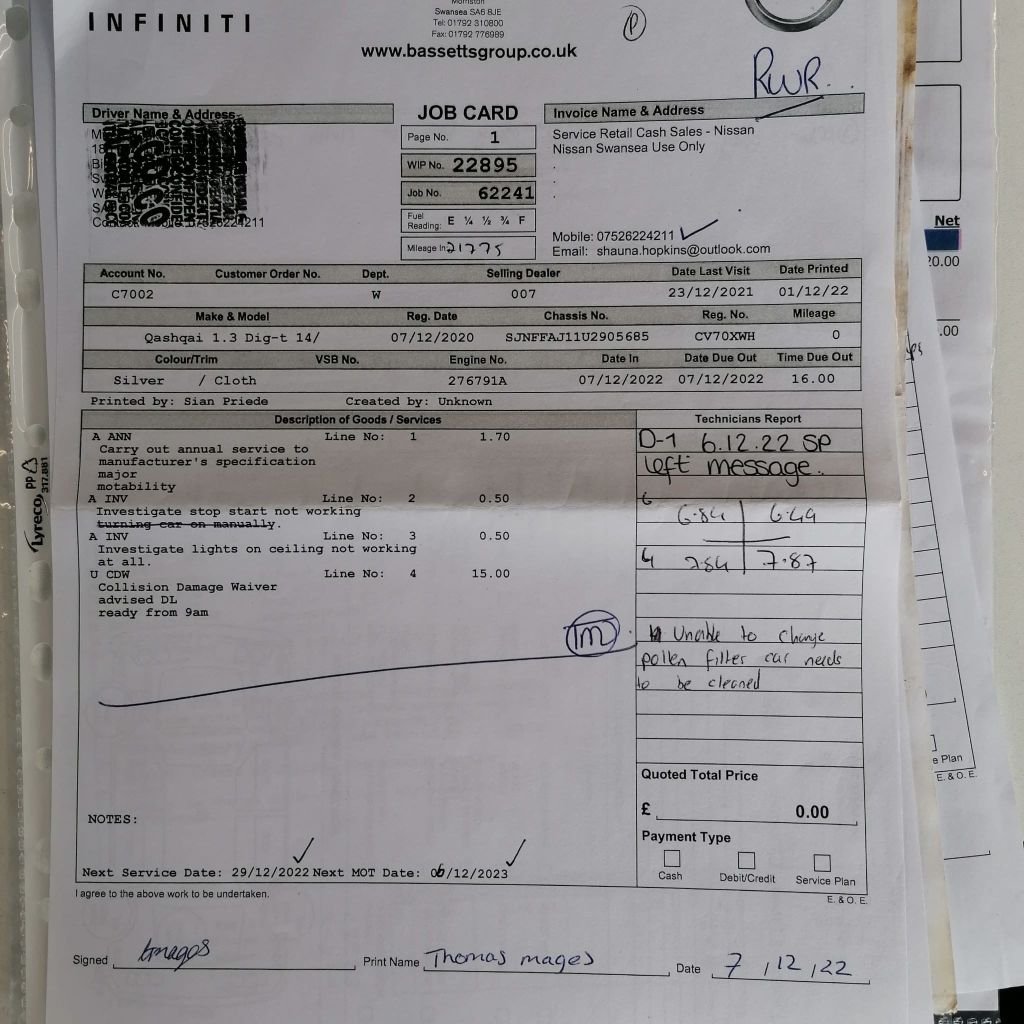 INFINITI
Morriston
Swansea SA6 8JE
Tel: 01792 310800
Fax: 01792 776989
www.bassettsgroup.co.uk
P
RWR.
Driver Name & Address
JOB CARD
Invoice Name & Address
Page No. 1
Service Retail Cash Sales - Nissan
Nissan Swansea Use Only
WIP No. 22895
Job No. 62241
Fuel Reading: E ¼ ½ ¾ F
Mileage In 21775
Mobile: 07526224211
Email: shauna.hopkins@outlook.com
Account No. Customer Order No. Dept. Selling Dealer Date Last Visit Date Printed
C7002 W 007 23/12/2021 01/12/22
Make & Model Reg. Date Chassis No. Reg. No. Mileage
Qashqai 1.3 Dig-t 14/ 07/12/2020 SJNFFAJ11U2905685 CV70XWH 0
Colour/Trim VSB No. Engine No. Date In Date Due Out Time Due Out
Silver / Cloth 276791A 07/12/2022 07/12/2022 16.00
Printed by: Sian Priede Created by: Unknown
Description of Goods / Services
Technicians Report
A ANN Line No: 1 1.70
Carry out annual service to
manufacturer's specification
major
motability
A INV Line No: 2 0.50
Investigate stop start not working
turning car on manually.
A INV Line No: 3 0.50
Investigate lights on ceiling not working
at all.
U CDW Line No: 4 15.00
Collision Damage Waiver
advised DL
ready from 9am
TM
D-1 6.12.22 SP
left message.
6.84 6.49
7.87
Unable to change
pollen filter car needs
to be cleaned
Quoted Total Price
£ 0.00
Payment Type
Cash Debit/Credit Service Plan
NOTES:
Next Service Date: 29/12/2022 Next MOT Date: 06/12/2023
I agree to the above work to be undertaken.
E. & O. E.
Signed tmages Print Name Thomas mages Date 7/12/22
Net
20.00
.00
e Plan
E. & O. E.
Lyreco PP
317.881